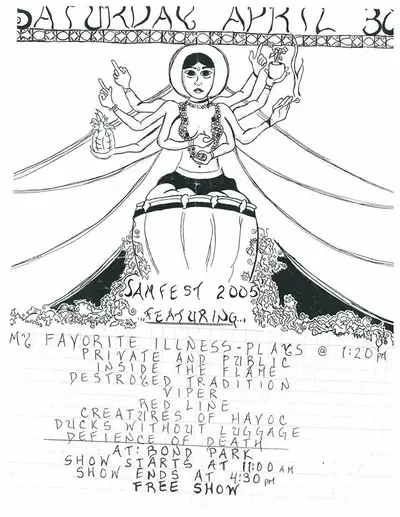 SATURDAY APRIL 30
SAMFEST 2005
...FEATURING...
MY FAVORITE ILLNESS-PLAYS @ 1:20 PM
PRIVATE AND PUBLIC
INSIDE THE FLAME
DESTROYED TRADITION
VIPER
RED LINE
CREATURES OF HAVOC
DUCKS WITHOUT LUGGAGE
DEFIENCE OF DEATH
AT: BOND PARK
SHOW STARTS AT 11:00 AM
SHOW ENDS AT 4:30 PM
FREE SHOW